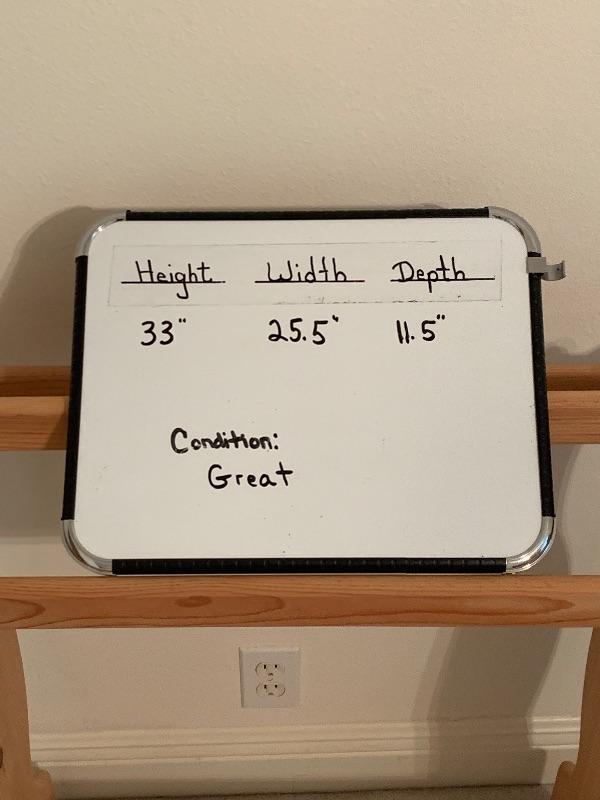 Height Width Depth
33" 25.5" 11.5"
Condition:
Great